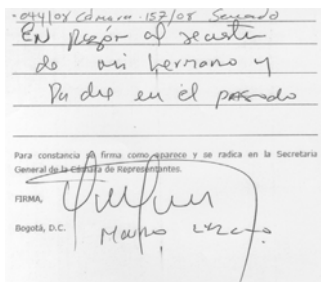 044/08 Cámara 157/08 Senado
EN Razón al secuestro
de mi hermano y
Padre en el pasado
Para constancia se firma como aparece y se radica en la Secretaria
General de la Cámara de Representantes.
FIRMA,
Bogotá, D.C.